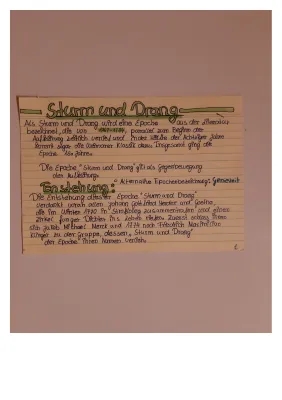 Sturm und Drang
Als Sturm und Drang wird eine Epoche aus der Literatur
bezeichnet, die von parallel zum Beginn der
Aufklärung zeitlich verlief und in der Mitte der Achtziger Jahren
kommt sogar die Weimarer Klassik dazu. Insgesamt ging die
Epoche Jahre.
"Die Epoche "Sturm und Drang" gilt als Gegenbewegung
der Aufklärung.
Entstehung: "Alternative Epochenbezeichnung: Geniezeit
"Die Entstehung dieser Epoche "Sturm und Drang"
verdankt man allem Johann Gottfried Herder und Goethe,
die im Winter 1770 in Straßburg zusammentrafen und einen
Zirkel junger Dichter ins Leben riefen. Zuerst schloss ihnen
sich Jakob Michael Merck und 1774 noch Friedrich Maximilian
Klinger zu der Gruppe, dessen "Sturm und Drang"
der Epoche ihren Namen verlieh.